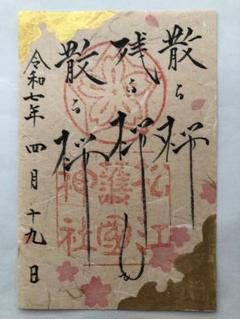 散る桜
残る桜も
散る桜
令和七年 四月 十九日
松江
護國
神社